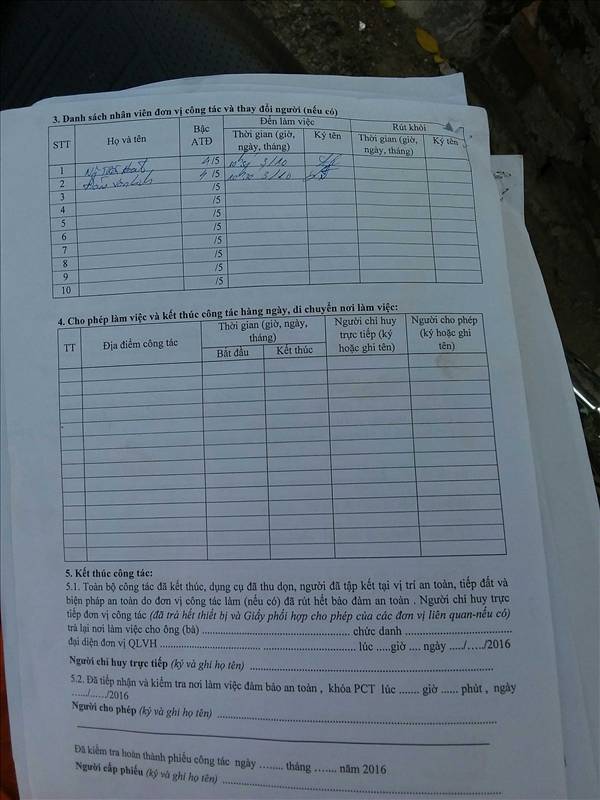 3. Danh sách nhân viên đơn vị công tác và thay đổi người (nếu có)
STT Họ và tên Bậc ATĐ Đến làm việc Rút khỏi
Thời gian (giờ, ngày, tháng) Ký tên Thời gian (giờ, ngày, tháng) Ký tên
1 4/5 3/10
2 4/5 3/10
3 /5
4 /5
5 /5
6 /5
7 /5
8 /5
9 /5
10 /5
4. Cho phép làm việc và kết thúc công tác hàng ngày, di chuyển nơi làm việc:
TT Địa điểm công tác Thời gian (giờ, ngày, tháng) Người chỉ huy trực tiếp (ký hoặc ghi tên) Người cho phép (ký hoặc ghi tên)
Bắt đầu Kết thúc
5. Kết thúc công tác:
5.1. Toàn bộ công tác đã kết thúc, dụng cụ đã thu dọn, người đã tập kết tại vị trí an toàn, tiếp đất và
biện pháp an toàn do đơn vị công tác làm (nếu có) đã rút hết bảo đảm an toàn . Người chỉ huy trực
tiếp đơn vị công tác (đã trả hết thiết bị và Giấy phối hợp cho phép của các đơn vị liên quan-nếu có)
trả lại nơi làm việc cho ông (bà) ........................................ chức danh ..............................
đại diện đơn vị QLVH ........................................ lúc .....giờ .... ngày ..../...../2016
Người chỉ huy trực tiếp (ký và ghi họ tên) ............................................................
5.2. Đã tiếp nhận và kiểm tra nơi làm việc đảm bảo an toàn , khóa PCT lúc ....... giờ ...... phút , ngày
....../....../2016
Người cho phép (ký và ghi họ tên) ............................................................
Đã kiểm tra hoàn thành phiếu công tác ngày ........ tháng ....... năm 2016
Người cấp phiếu (ký và ghi họ tên) ............................................................